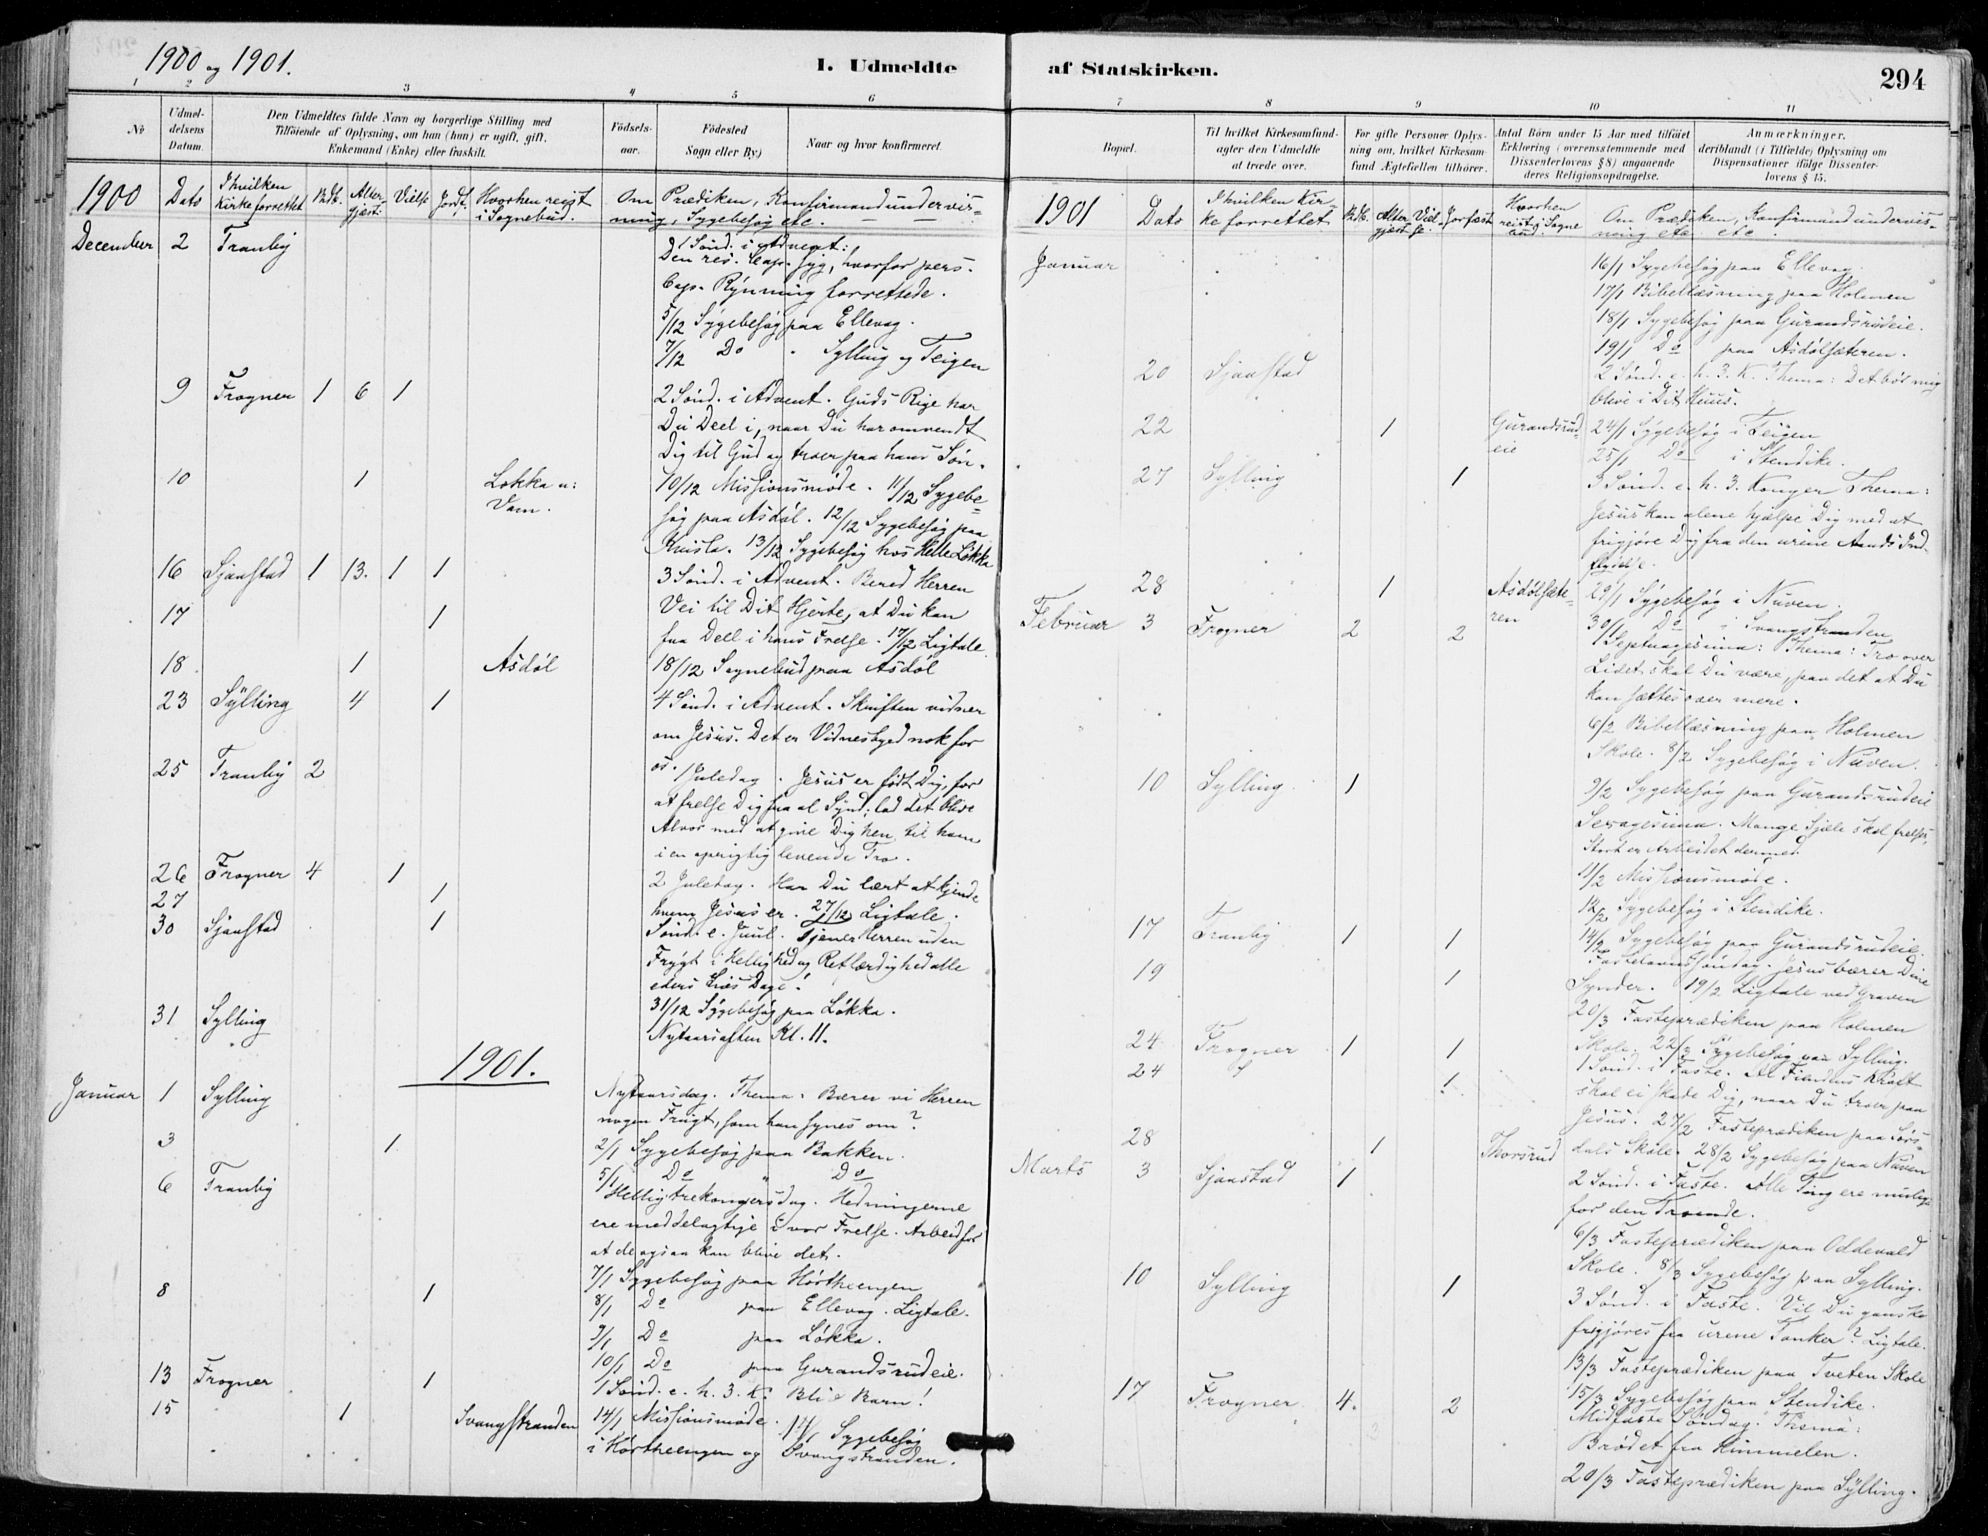 1900 og 1901.
I. Udmeldte
1 2 3 4 5 6
No
Udmel-
delsens
Datum.
Den Udmeldtes fulde Navn og borgerlige Stilling med
Tilføiende af Oplysning, om han (hun) er ugift, gift,
Enkemand (Enke) eller fraskilt.
Fødsels-
aar.
Fødested
Sogn eller By.)
Naar og hvor konfirmeret.
1900 Dato I hvilken Kirke forrettet Bdb. Alter gjæst. Vielse Jordf. Hvorhen reist i Sognebud. Om Prædiken, Konfirmandundervis-
ning, Sygebesøg etc.
December 2 Tranby 1 Sønd. i Advent:
Den res. Cap. syg, hvorfor pers.
Cap. Rynning forrettede.
5/12 Sygebesøg paa Ellevog.
7/12 Do " Sylling og Teigen
9 Frogner 1 6 1 2 Sønd. i Advent. Guds Rige har
Du Deel i, naar Du har omvendt
Dig til Gud og troer paa hans Søn.
10 1 Løkka u: Vam. 10/12 Missionsmøde. 11/12 Sygebe-
søg paa Asdøl. 12/12 Sygebesøg paa
13/12 Sygebesøg hos Helle Løkka
16 Sjaastad 1 13. 1 1 3 Sønd. i Advent. Bered Herren
17 1 Vei til Dit Hjerte, at Du kan
faa Deel i hans Frelse. 17/12 Ligtale.
18 1 Asdøl 18/12 Sognebud paa Asdøl
23 Sylling 4 1 4 Sønd. i Advent. Skriften vidner
om Jesus. Det er Vidnesbyrd nok for
os.
25 Tranby 2 1 Juledag. Jesus er født Dig, for
at frelse Dig fra al Synd; lad det blive
Alvor med at give Dig hen til ham
i en oprigtig levende Tro.
26 Frogner 4 1 2 Juledag. Har Du lært at kjende
27 1 hvem Jesus er. 27/12 Ligtale.
30 Sjaastad 1 Sønd. e. Juul. Tjener Herren uden
Frygt i Hellighed og Retfærdighed alle
eders Livs Dage!
31/12 Sygebesøg paa Løkka.
31 Sylling Nytaarsaften Kl. 11.
1901.
Januar 1 Sylling Nytaarsdag. Thema: Bærer vi Herren
nogen Frugt, som han synes om?
3 1 2/1 Sygebesøg paa Bakken.
5/1 Do " Do
6 Tranby Helligtrekongersdag. Hedningerne
ere meddelagtige i vor Frelse. Arbeid for
at de ogsaa kan blive det.
7/1 Sygebesøg paa Hørtheengen
8 1 8/1 Do paa Ellevog. Ligtale.
9/1 Do paa Løkka.
10/1 Do paa Gurandsrudeie.
13 Frogner 1 1 Sønd. e. h. 3. K. Bliv Barn!
15 1 Svangstranden 14/1 Missionsmøde. 14/1 Sygebesøg
i Hørtheengen og Svangstranden.
af Statskirken.
294
7 8 9 10 11
Bopæl.
Til hvilket Kirkesamfund-
agter den Udmeldte
at træde over.
For gifte Personer Oplys-
ning om, hvilket Kirkesam-
fund Ægtefællen tilhører.
Antal Børn under 15 Aar med tilføiet
Erklæring (overensstemmende med
Dissenterlovens § 8) angaaende
deres Religionsopdragelse.
Anmærkninger,
deriblandt (i Tilfælde) Oplysning om
Dispensationer ifølge Dissenter-
lovens § 15.
1901 Dato I hvilken Kir-
ke forrettet Bdb. Alter gjæst Viel- se. Jorfæst Hvorhen reist i Sogne bud. Om Prædiken, Konfirmandundervis-
ning etc. etc.
Januar 16/1 Sygebesøg paa Ellevog.
17/1 Bibellæsning paa Holmen
18/1 Sygebesøg paa Gurandsrudeie.
19/1 Do paa Asdølsæteren.
20 Sjaastad 2 Sønd. e. h. 3. K. Thema: Det bør mig
blive i Dit Huus.
22 1 Gurandsrud-
eie 24/1 Sygebesøg i Teigen
25/1 Do i Stendike.
27 Sylling 1 3 Sønd. e. h. 3. Konger Thema:
Jesus kan alene hjælpe Dig med at
frigjøre Dig fra den urene Aands Ind-
flydelse.
28 1 Asdølsæte-
ren 29/1 Sygebesøg i Nuven.
30/1 Do i Svangstranden
Februar 3 Frogner 2 2 Septuagesima: Thema: Tro over
Lidet skal Du være, paa det at Du
kan sættes over mere.
6/2 Bibellæsning paa Holmen
Skole. 8/2 Sygebesøg i Nuven.
10 Sylling 1 9/2 Sygebesøg paa Gurandsrudeie
Sexagesima. Mange Sjæle skal frelses,
Stort er Arbeidet dermed.
11/2 Missionsmøde.
12/2 Sygebesøg i Stendike.
17 Tranby 1 1 14/2 Sygebesøg paa Gurandsrudeie.
Fastelavnssøndag. Jesus bærer Dine
19 1 Synder. 19/2 Ligtale ved Graven
20/3 Fasteprædiken paa Holmen
24 Frogner 1 1 Skole. 22/2 Sygebesøg paa Sylling.
24 1 1 Sønd. i Faste. Al Fiendens Kraft
skal ei skade Dig, naar Du troer paa
Jesus. 27/2 Fasteprædiken paa Sørs-
28 1 Thorsrud dals Skole. 28/2 Sygebesøg paa Nuven
Marts 3 Sjaastad 1 2 Sønd. i Faste. Alle Ting ere mulige
for den Troende.
6/3 Fasteprædiken paa Oddevald
Skole. 8/3 Sygebesøg paa Sylling.
10 Sylling 1 3 Sønd. i Faste. Vil Du ganske
frigjøres fra urene Tanker? Ligtale.
13/3 Fasteprædiken paa Tveten Skole
15/3 Sygebesøg paa Stendike.
17 Frogner 4. 2 Midfaste Søndag. Thema:
Brødet fra Himmelen.
20/3 Fasteprædiken paa Sylling.